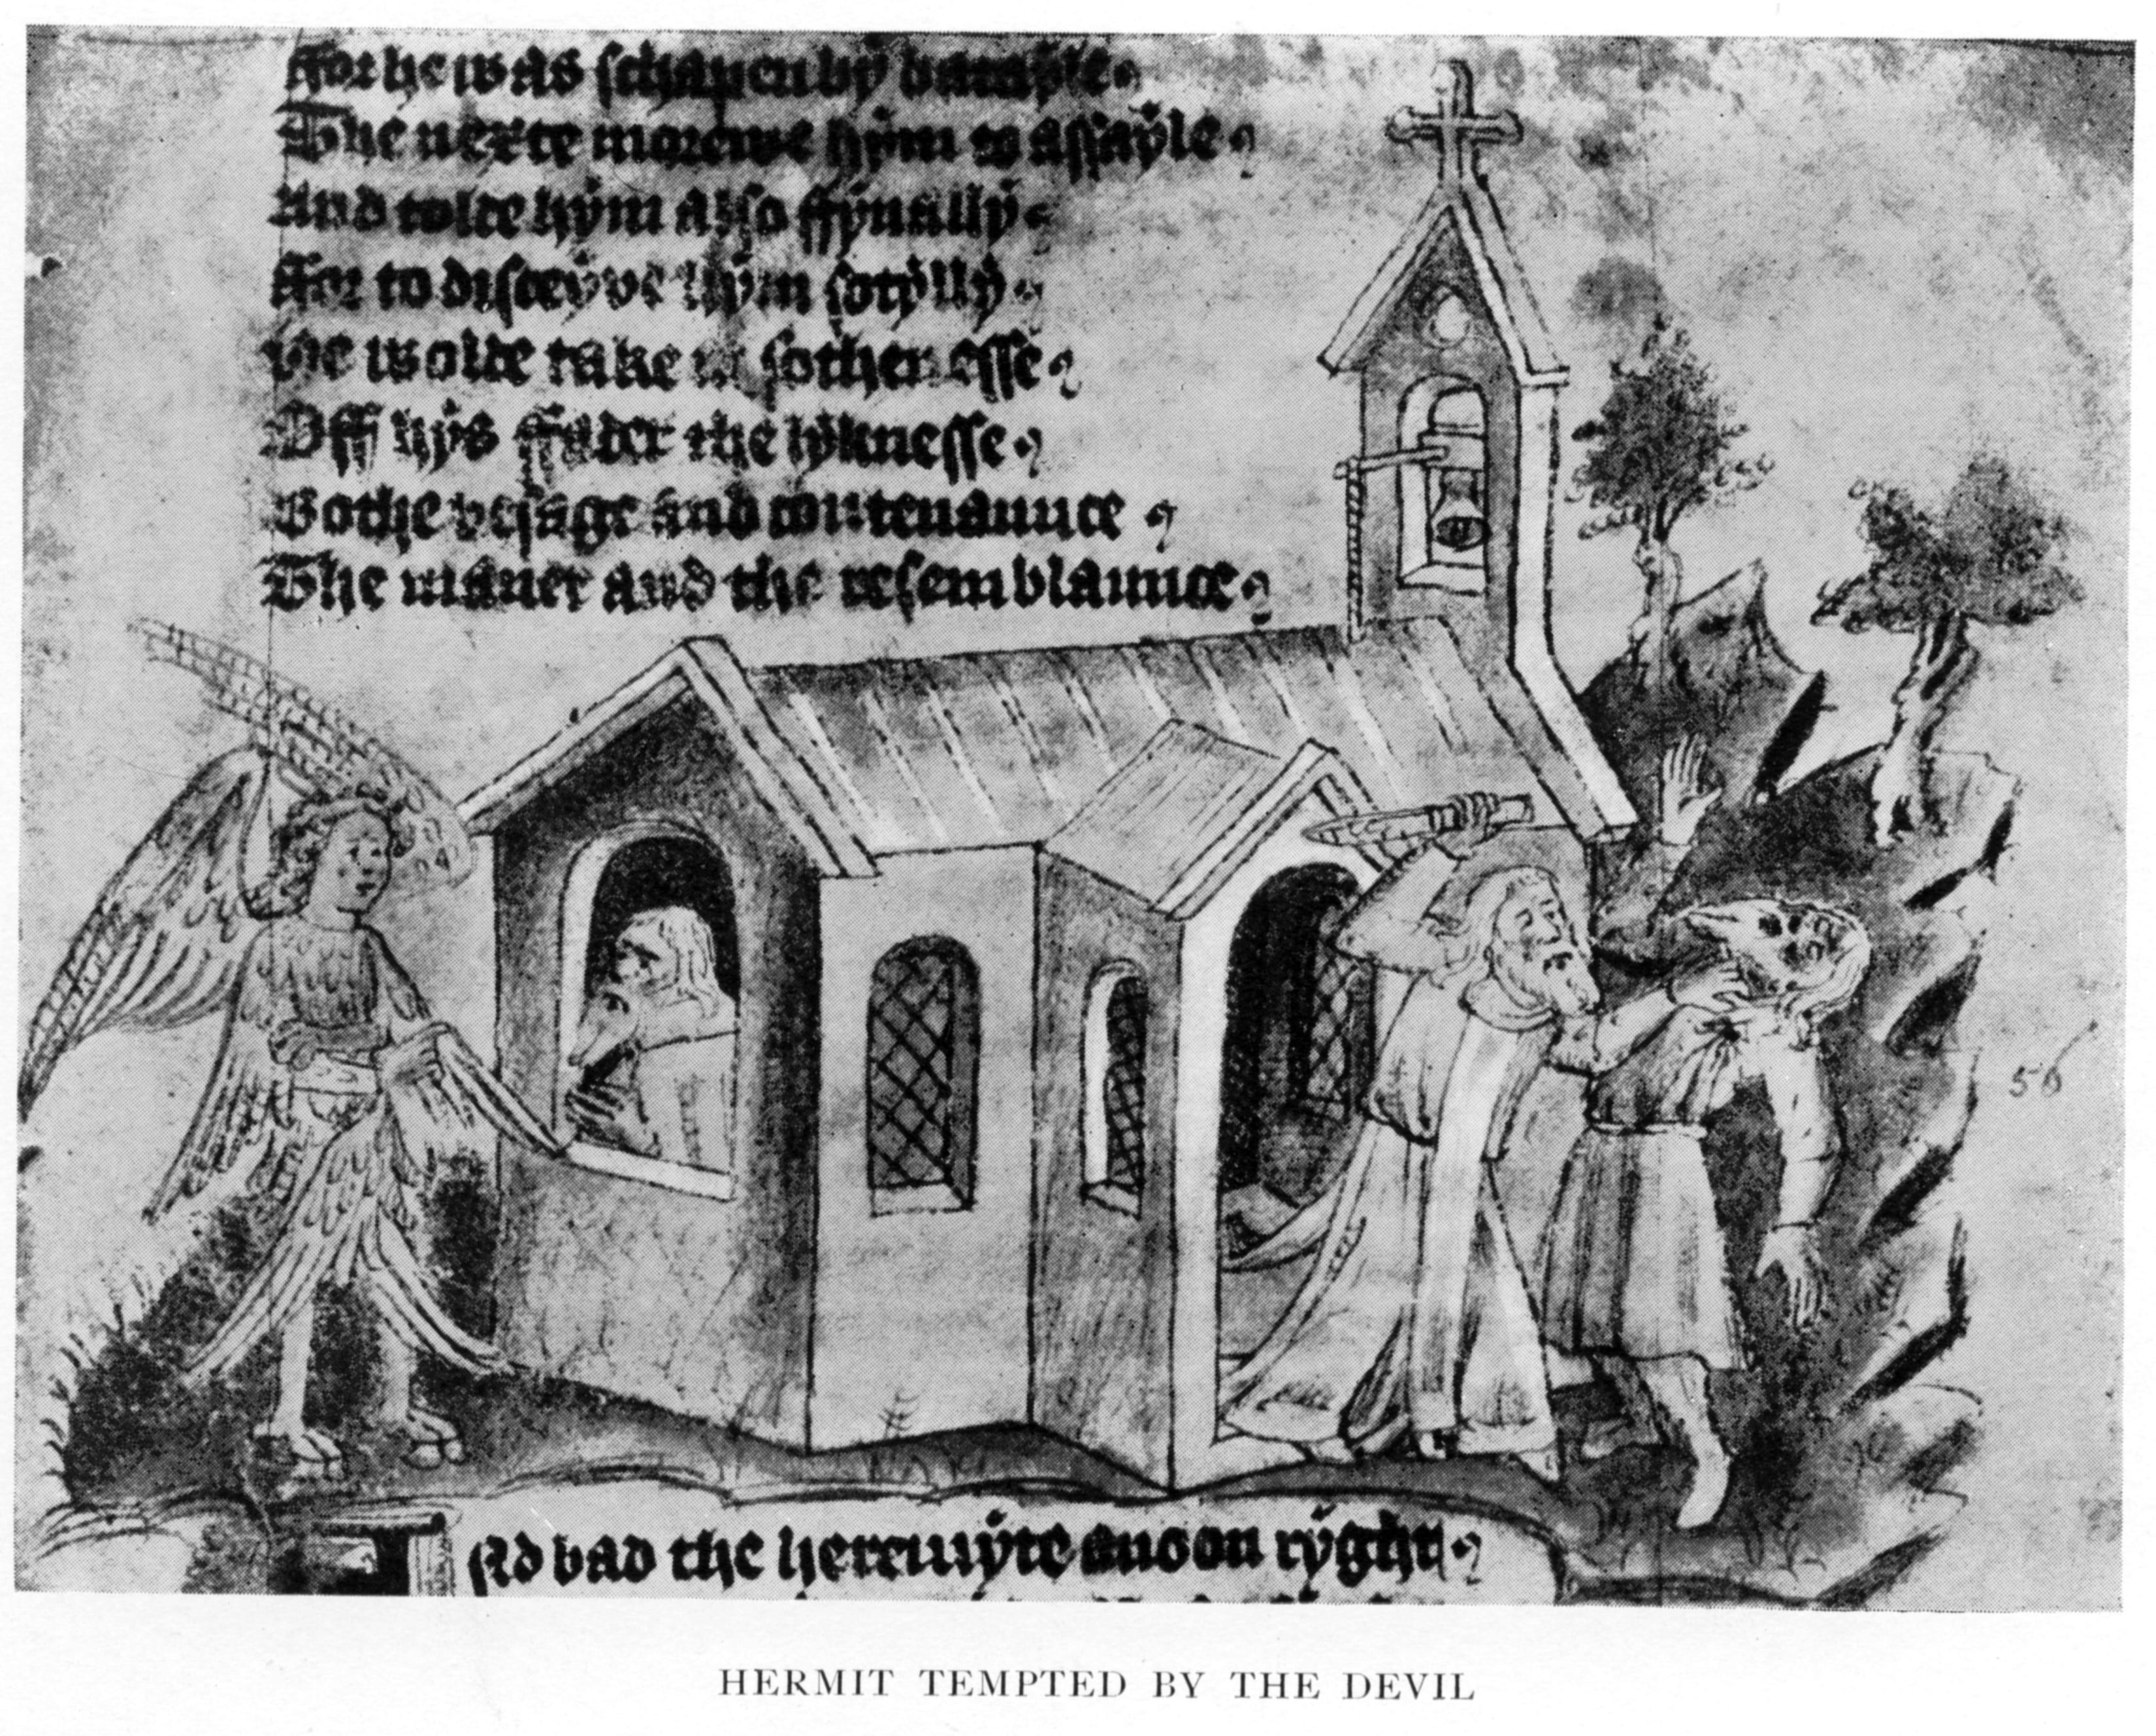 ffor he was schapen by batayle
The nexte morowe hym to assayle
And tolde hym also ffynally
ffor to disceyve hym sotylly
He wolde take in sothenesse
Off hys ffader the lyknesse
Bothe vesage and contenaunce
The maner and the resemblaunce
56
And bad the heremyte anoon ryght
HERMIT TEMPTED BY THE DEVIL